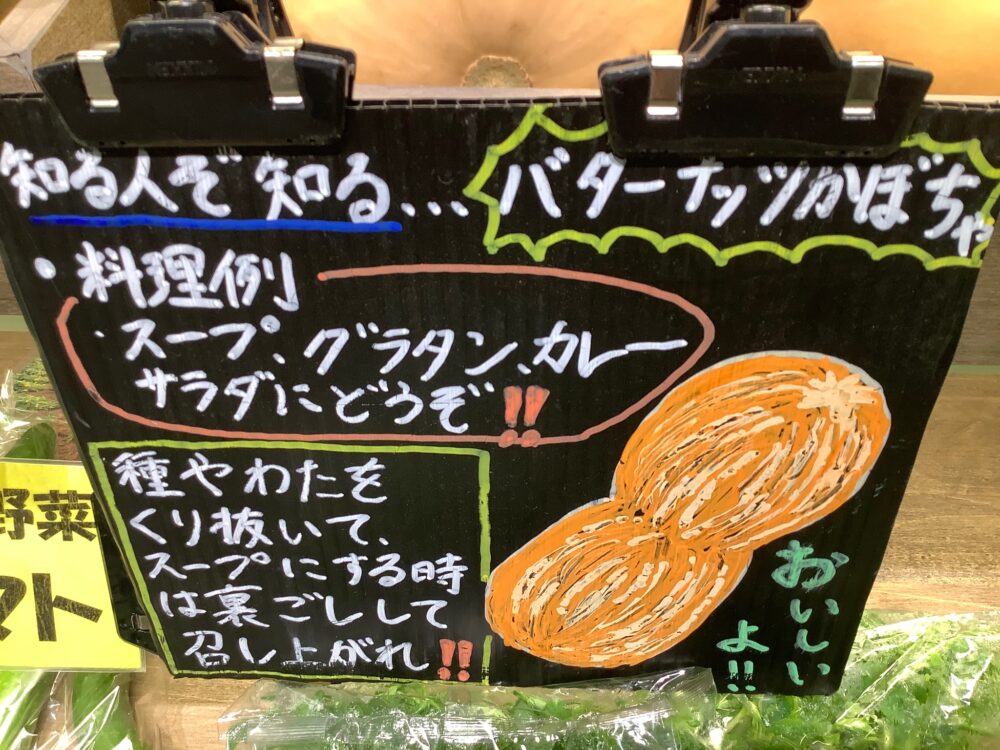 知る人ぞ知る...
バターナッツかぼちゃ
・料理例
・スープ、グラタン、カレー
サラダにどうぞ!!
種やわたを
くり抜いて、
スープにする時
は裏ごしして
召し上がれ!!
おいしい
よ!!
野菜
マト